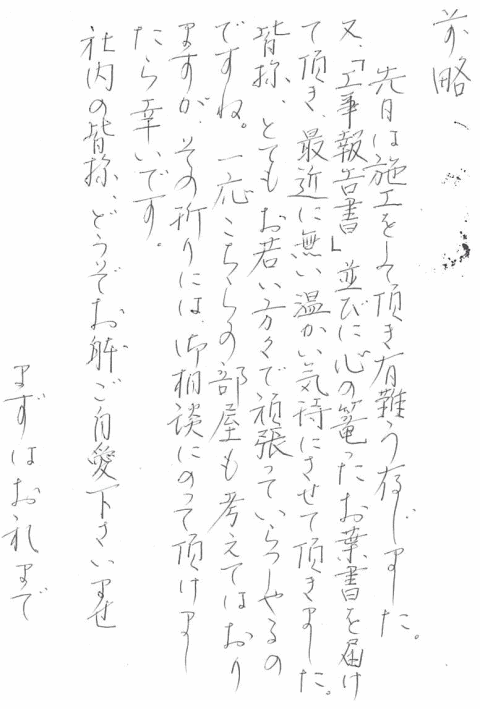 前略、
先日は施工をして頂き有難う存じました。
又、「工事報告書」並びに心の篭ったお葉書を届け
て頂き、最近に無い温かい気持にさせて頂きました。
皆様、とてもお若い方々で頑張っていらっしゃるの
ですね。一応こちらの部屋も考えてはおり
ますが、その折りには、御相談にのって頂けまし
たら幸いです。
社内の皆様、どうぞお体ご自愛下さいませ
まずはお礼まで